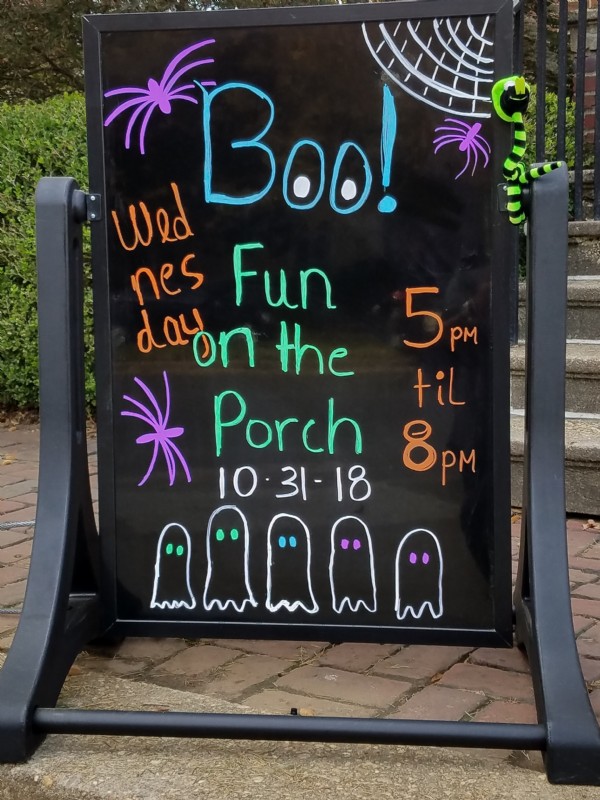 Boo!
Wed
nes
day
Fun
on the
Porch
10·31-18
5 pm
til
8 pm